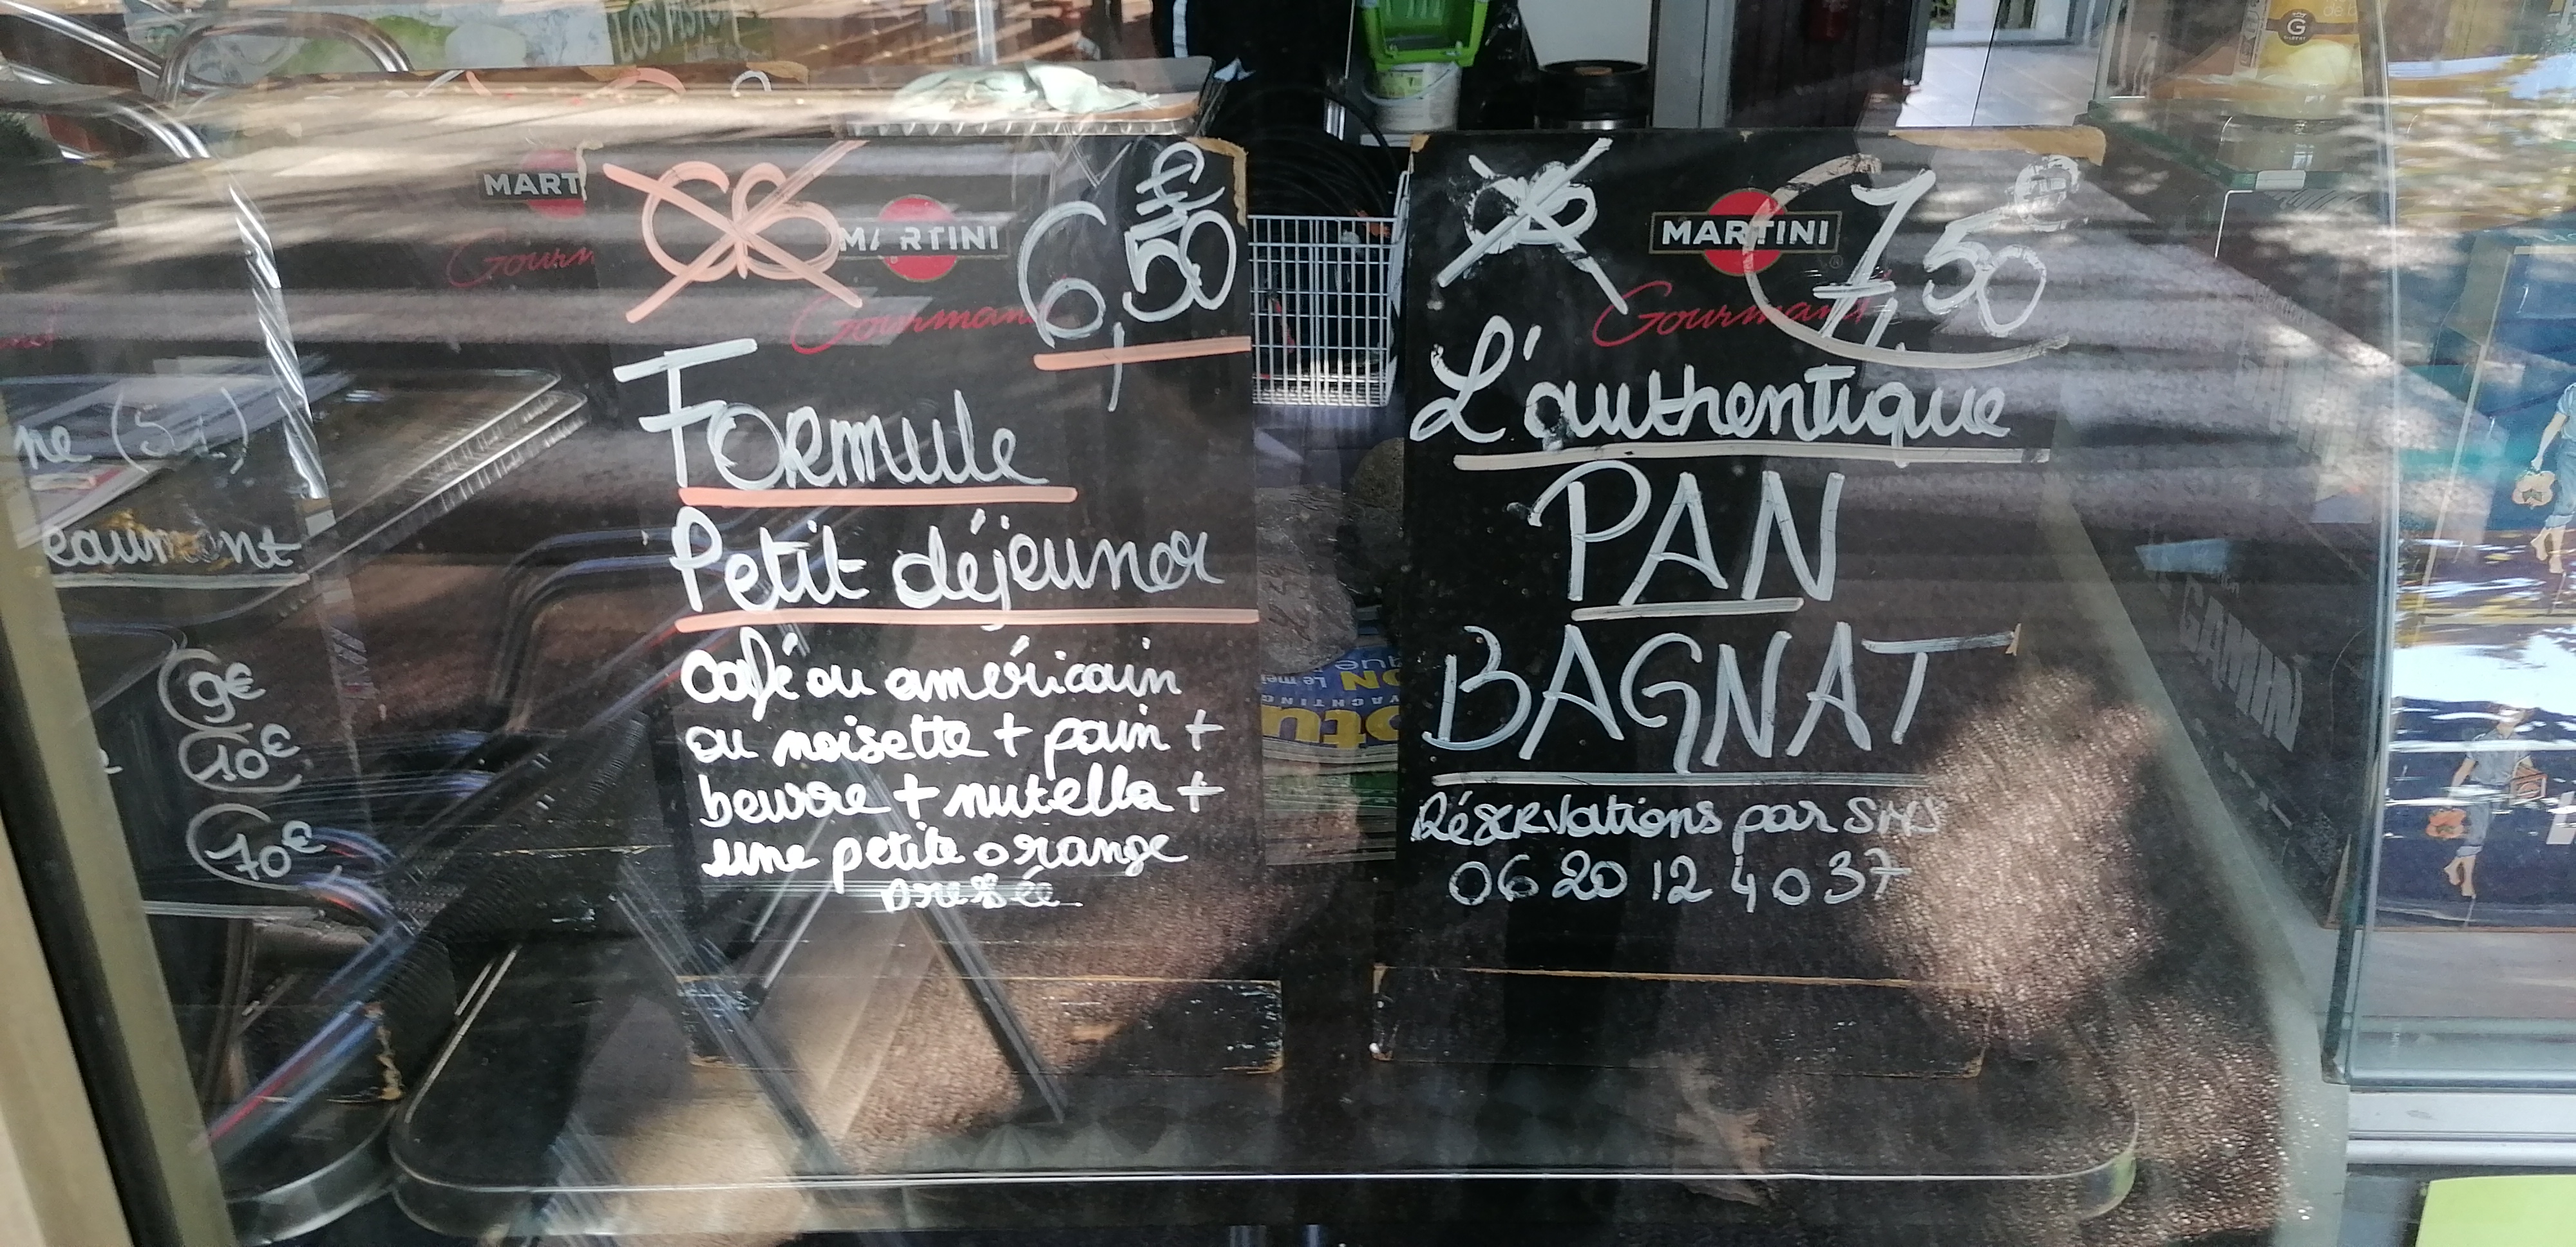 LOS
MART
Gourm
ne (51)
eaumont
9€
10€
70€
MARTINI
6,50
€
Gourmand
Formule
Petit déjeuner
Café ou américain
ou noisette + pain +
beurre + nutella +
une petite orange
pressée
MARTINI
7,50€
Gourmand
L'authentique
PAN
BAGNAT
Réservations par SMS
06 20 12 40 37
GAMIN
G